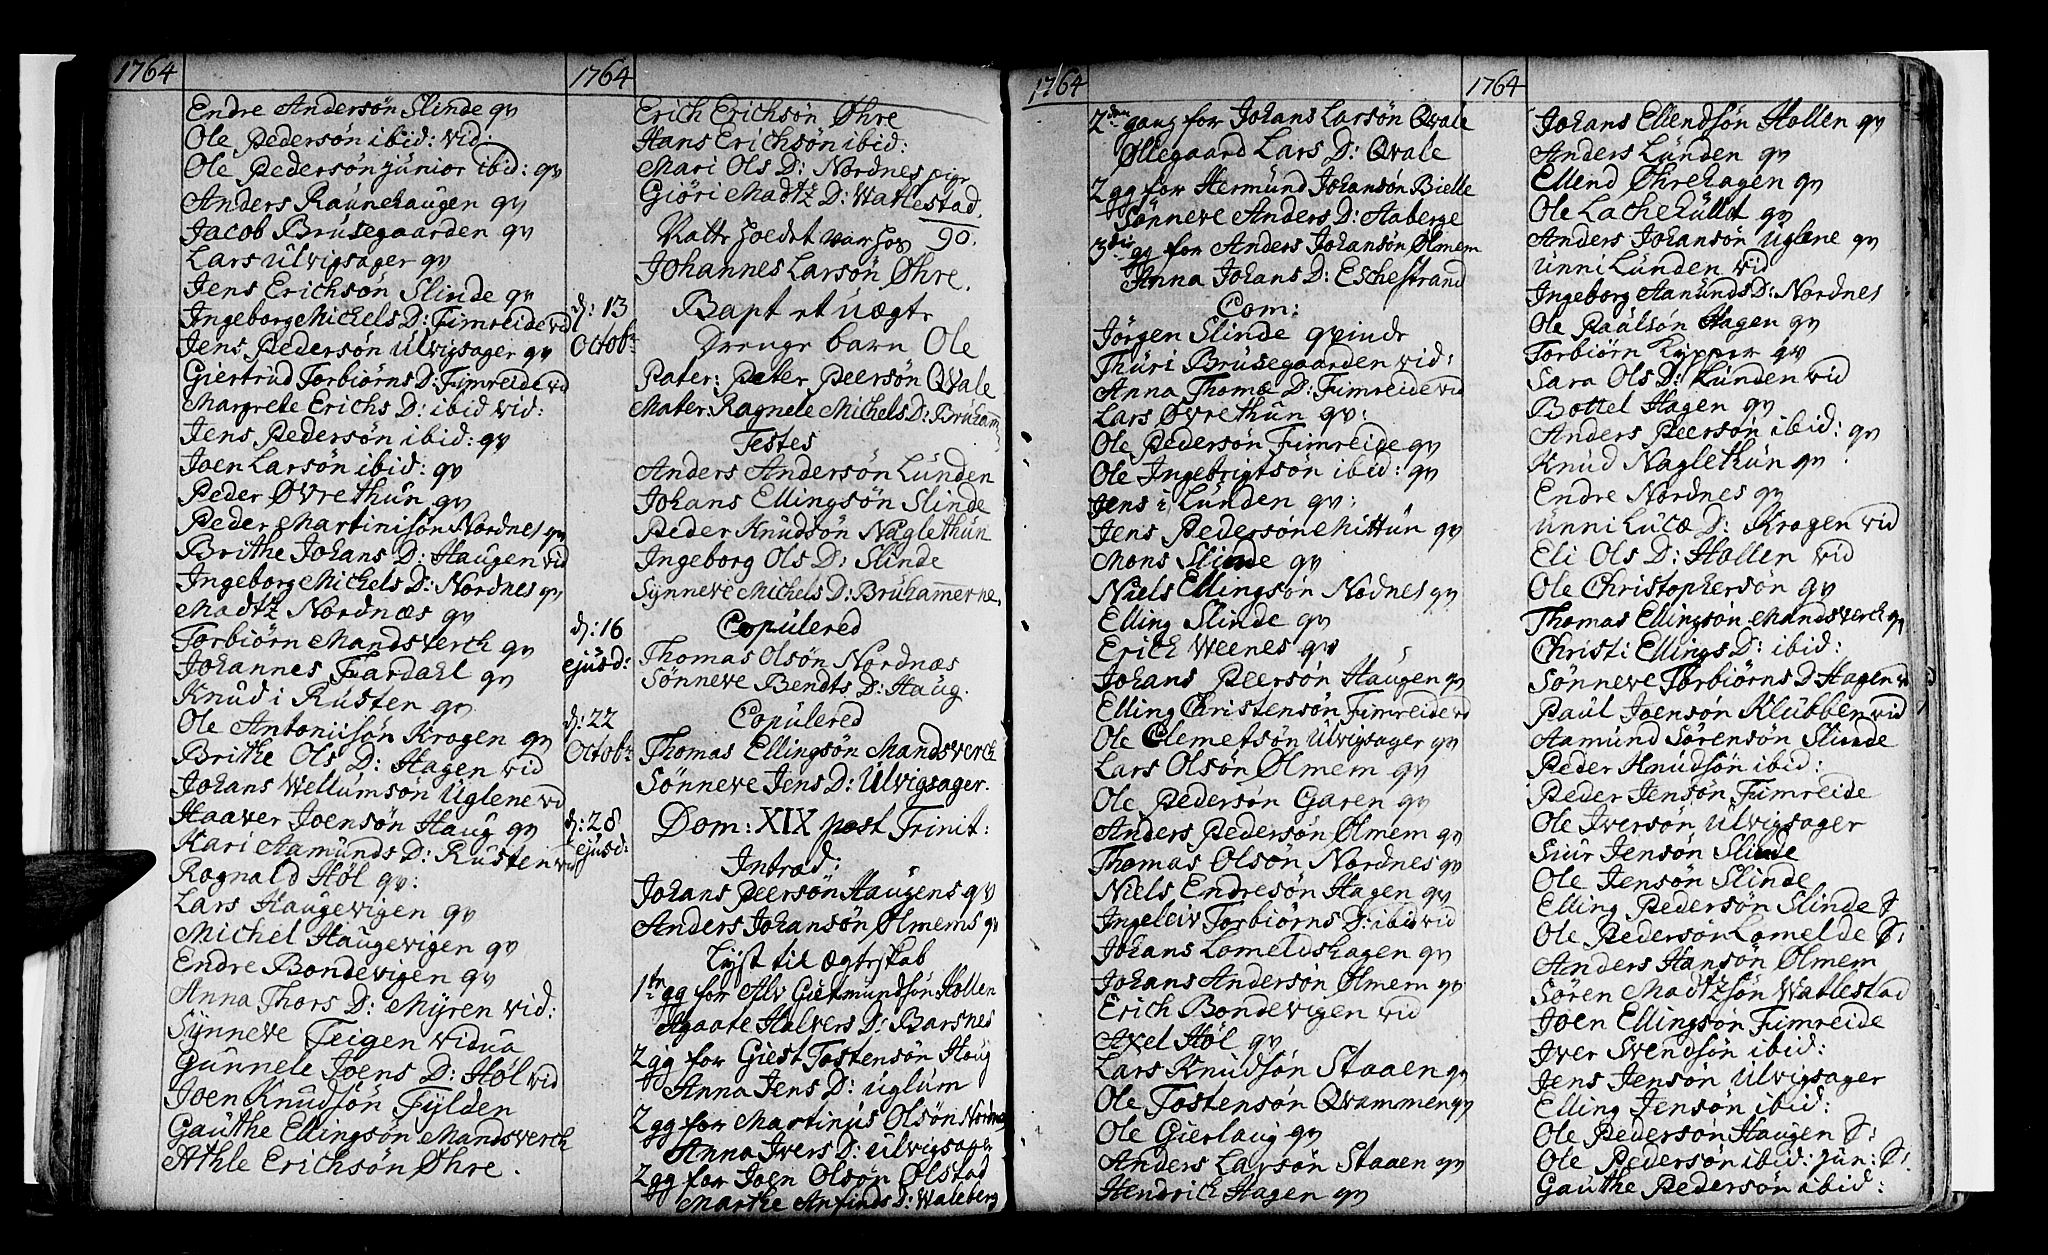 1764
Endre Andersøn Slinde qv
Ole Pedersøn ibid: vid:
Ole Pedersøn junior ibid: qv
Anders Raunehaugen qv
Jacob Brusegaarden qv
Lars Ulvigsager qv
Jens Erichsøn Slinde qv
Ingeborg Michels D: Fimreide vid
Jens Pedersøn Ulvigsager qv
Giertrud Torbiørns D: Fimreide vid
Margrete Erichs D: ibid vid:
Jens Pedersøn ibid: qv
Joen Larsøn ibid: qv
Peder Øvrethun qv
Peder Martinisøn Nordnes qv
Brithe Johans D: Haugen vid
Ingeborg Michels D: Nordnes qv
Madtz Nordnæs qv
Torbiørn Mandsverch qv
Johannes Fardahl qv
Knud i Rusten qv
Ole Antonisøn Krogen qv
Brithe Ols D: Hagen vid
Johans Wellumsøn Uglene vid
Haaver Joensøn Haug qv
Kari Aamunds D: Rusten vid
Ragnald Høl qv:
Lars Haugevigen qv
Michel Haugevigen qv
Endre Bondevigen qv
Anna Thors D: Myren vid:
Synneve Teigen vidua
Gunnele Joens D: Høl vid
Joen Knudsøn Fylden
Gauthe Ellingsøn Mandsverch
Athle Erichsøn Øhre.
1764
Erich Erichsøn Øhre
Hans Erichsøn ibid:
Mari Ols D: Nordnes pige
Giøri Madtz D: Watlestad.
90.
Natteordet var hos
Johannes Larsøn Øhre.
d: 13 Octob:
Bapt et uægte
Drenge barn Ole
Pater: Peter Peersøn Qvale
Mater: Ragnele Michels D: Bruham̅
Testes
Anders Andersøn Lunden
Johans Ellingsøn Slinde
Peder Knudsøn Naglethun
Ingeborg Ols D: Slinde
Synneve Michels D: Bruham̅erne.
d: 16 ejusd:
Copulered
Thomas Olsøn Nordnæs
Sønneve Bendts D: Haug.
d: 22 Octob:
Copulered
Thomas Ellingsøn Mandsverch
Sønneve Jens D: Ulvigsager.
d: 28 ejusd:
Dom: XIX post Trinit:
Introd:
Johans Peersøn Haugens qv
Anders Johansøn Ølmems qv
Lyst til Ægteskab
1ste gg for Alv Giermundsøn Hollen
Agaate Halvers D: Barsnes
2 gg for Giest Tostensøn Haug
Anna Jens D: Uglum
2 gg for Martinus Olsøn Nordnæs
Anna Ivers D: Ulvigsager
2 gg for Joen Olsøn Ølstad
Marthe Anfinds D: Waleberg
1764
2den gang for Johans Larsøn Qvale
Øllegaard Lars D: Qvale
2 gg for Hermund Johansøn Bielle
Sønneve Anders D: Aaberge
3die gg for Anders Johansøn Ølmem
Anna Johans D: Eschestrand
Com:
Jørgen Slinde qvinde
Thuri Brusegaarden vid:
Anna Thomæ D: Fimreide vid
Lars Øvrethun qv:
Ole Pedersøn Fimreide qv
Ole Ingebrigtsøn ibid: qv
Jens i Lunden qv:
Jens Pedersøn Mittun qv
Mons Slinde qv
Niels Ellingsøn Nodnes qv
Elling Slinde qv
Erich Weenes qv
Johans Peersøn Haugen qv
Elling Christensøn Fimreide vd
Ole Clemetsøn Ulvigsager qv
Lars Olsøn Ølmem qv
Ole Pedersøn Garen qv
Anders Pedersøn Ølmem qv
Thomas Olsøn Nordnes qv
Niels Endresøn Hagen qv
Ingeleiv Torbiørns D: ibid vid
Johans Lomeldshagen qv
Johans Andersøn Ølmem qv
Erich Bondevigen vid
Axel Høl qv
Lars Knudsøn Staaen qv
Ole Tostensøn Qvammen qv
Ole Gierlaug qv
Anders Larsøn Staaen qv
Hendrich Hagen qv
1764
Johans Ellendsøn Hollen qv
Anders Lunden qv
Ellend Øhrehagen qv
Ole Lachehullet qv
Anders Johansøn Uglene qv
Unni Lunden vid
Ingeborg Aamunds D: Nordnes
Ole Paalsøn Hagen qv
Torbiørn Kypper qv
Sara Ols D: Lunden vid
Bottel Hagen qv
Anders Peersøn ibid: qv
Knud Naglethun qv
Endre Nordnes qv
Unni Lucæ D: Krogen vid
Eli Ols D: Hollen vid
Ole Christophersøn qv
Thomas Ellingsøn Mandsverch qv
Christi Ellings D: ibid:
Sønneve Torbiørns D Hagen v
Paul Joensøn Klubben vid
Aamund Sørensøn Slinde
Peder Knudsøn ibid:
Peder Jensøn Fimreide
Ole Iversøn Ulvigsager
Siur Jensøn Slinde
Ole Jensøn Slinde
Elling Pedersøn Slinde S
Ole Pedersøn Lomelde S:
Anders Hansøn Ølmem
Søren Madtzsøn Watlestad
Joen Ellingsøn Fimreide
Iver Svendsøn ibid:
Jens Jensøn Ulvigsager
Elling Jensøn ibid:
Ole Pedersøn Haugen S:
Ole Pedersøn ibid: jun: S:
Gauthe Pedersøn ibid: